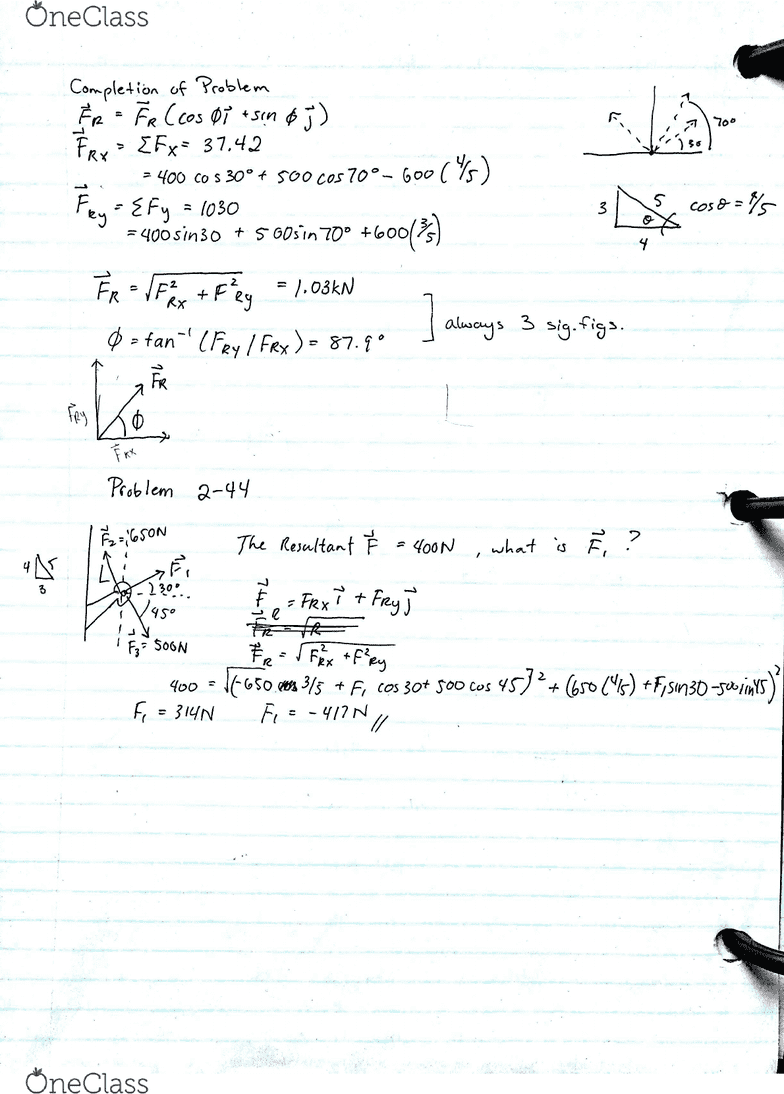 OneClass
Completion of Problem
F⃗R = F⃗R (cos ϕi⃗ + sin ϕ j⃗)
F⃗Rx = ΣFx = 37.42
= 400 cos30° + 500cos70° - 600 (4/5)
F⃗Ry = ΣFy = 1030
= 400sin30 + 500sin70° + 600(3/5)
70°
30
3
5
θ
4
cosθ = 4/5
F⃗R = √F²Rx + F²Ry = 1.03kN
ϕ = tan⁻¹ (FRy / FRx) = 87.9°
always 3 sig.figs.
F⃗R
F⃗Ry
ϕ
F⃗Rx
Problem 2-44
F⃗2 = 650N
F⃗1
30°
45°
F⃗3 = 500N
4
5
3
The Resultant F⃗ = 400N , what is F⃗1 ?
F⃗R = FRx i⃗ + FRy j⃗
F⃗R = √R
F⃗R = √F²Rx + F²Ry
400 = √(-650 3/5 + F1 cos30 + 500 cos 45)² + (650 (4/5) + F1sin30 - 500sin45)²
F1 = 314N F1 = -417N //
OneClass